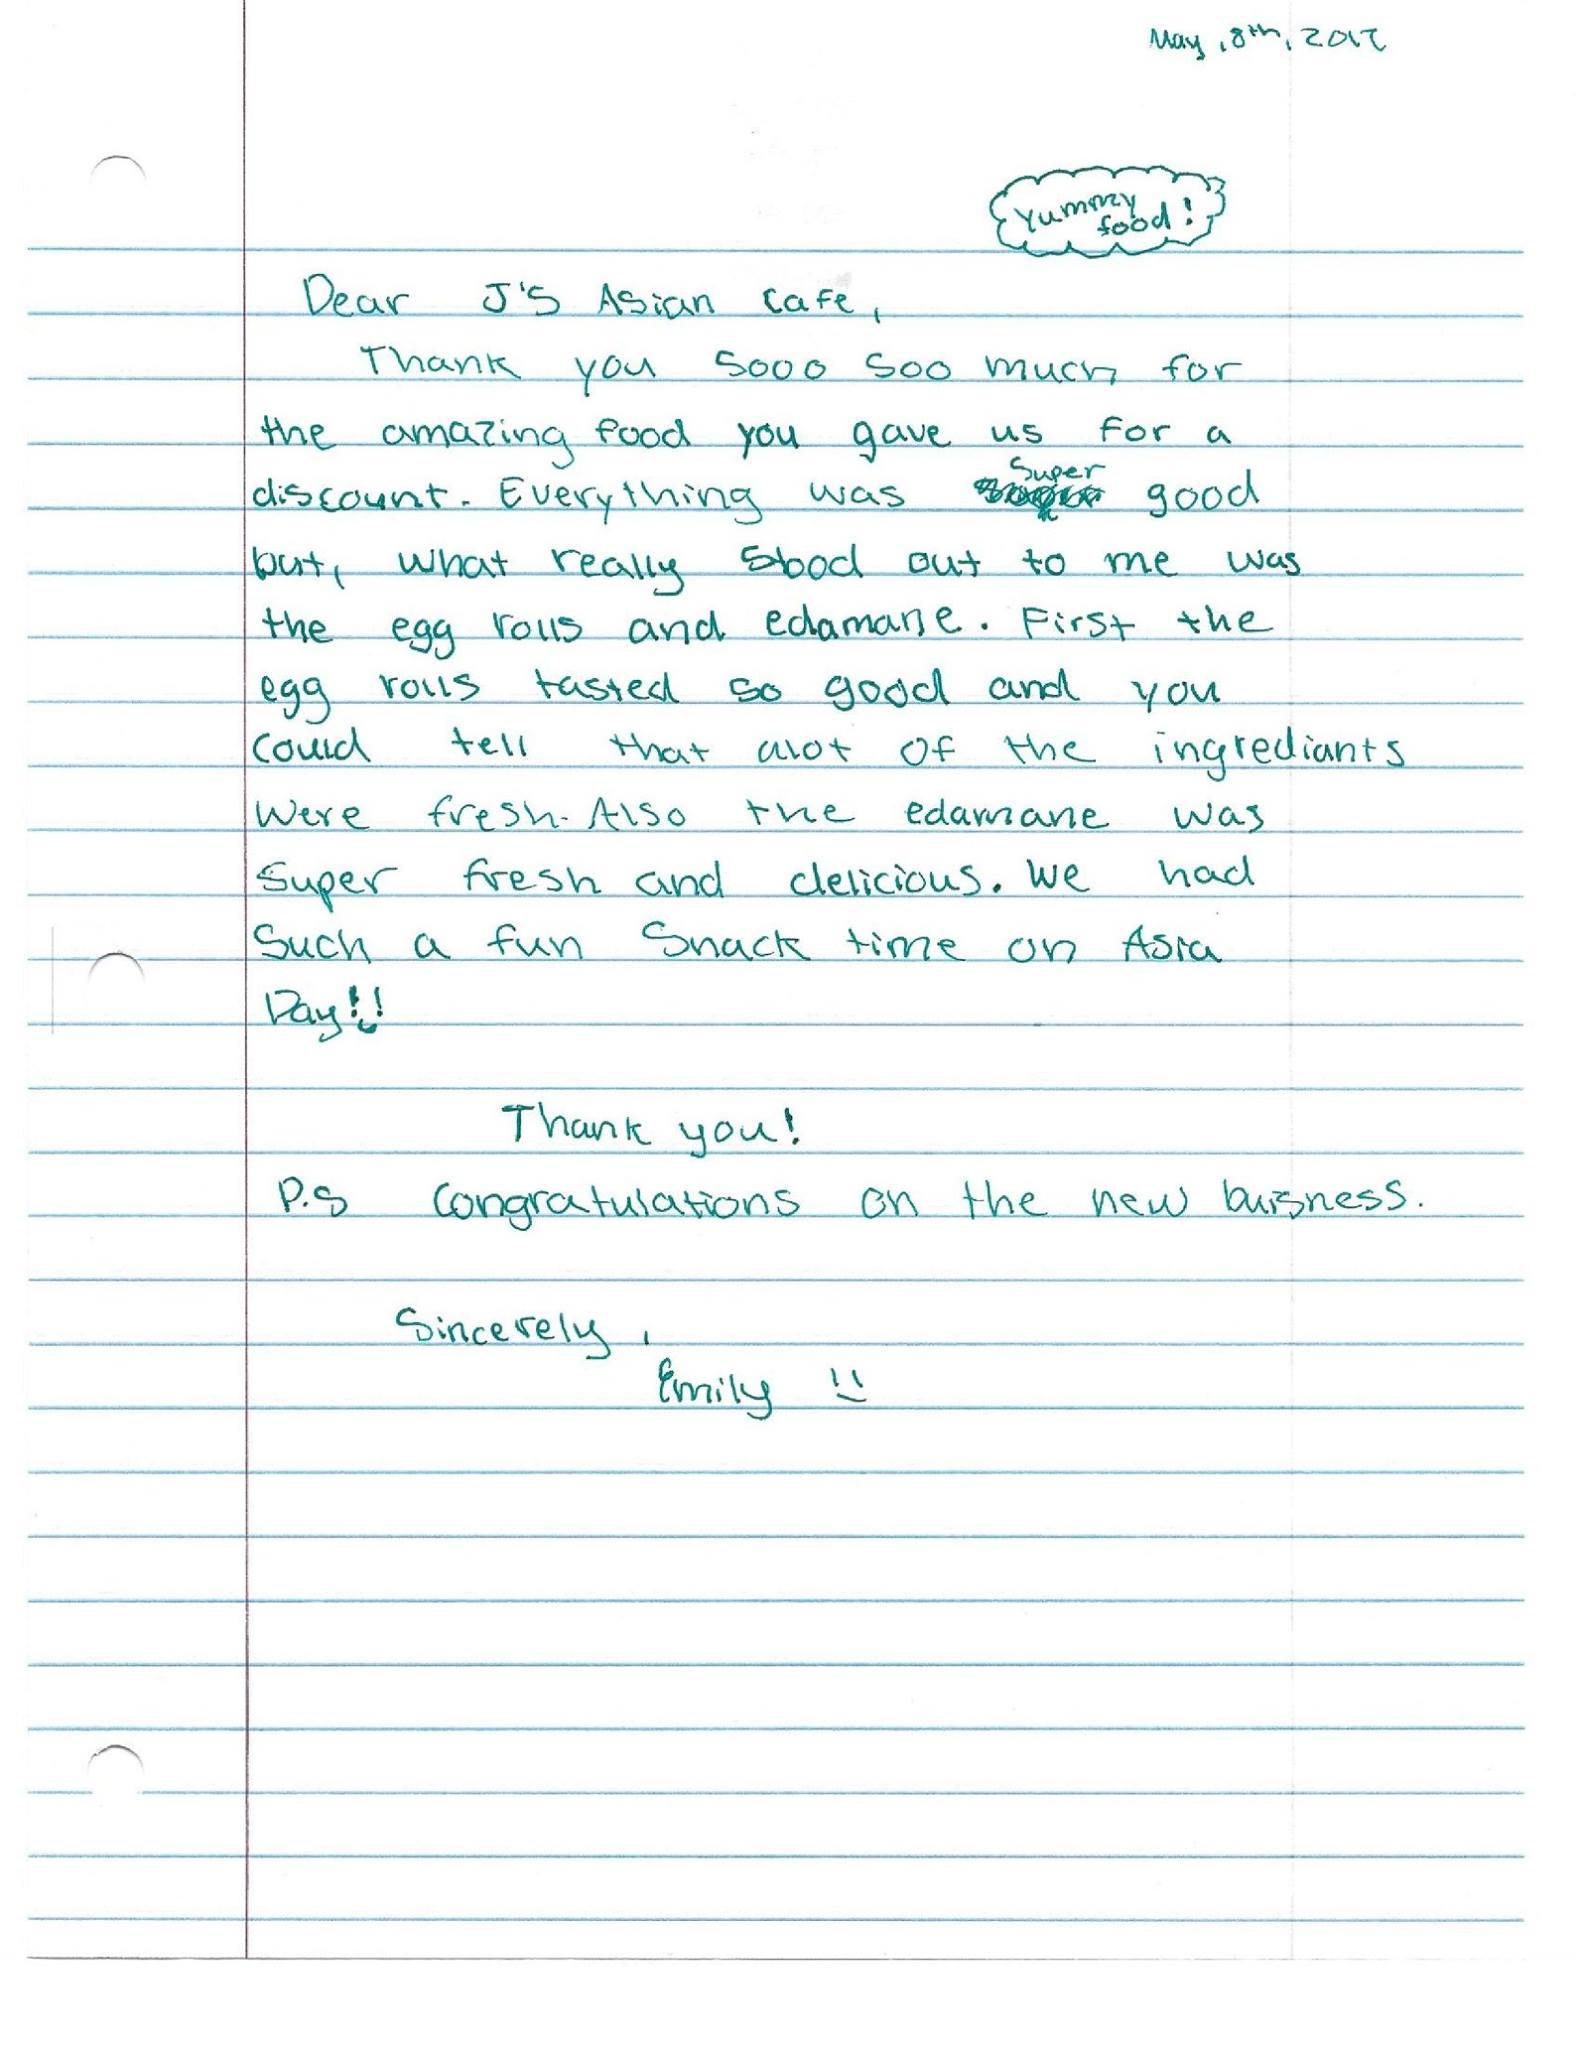 May, 8th, 2017
Yummy
food!
Dear J's Asian Cafe,
Thank you sooo soo much for
the amazing food you gave us for a
discount. Everything was super good
but, what really stood out to me was
the egg rolls and edamane. First the
egg rolls tasted so good and you
could tell that alot of the ingrediants
were fresh. Also the edamane was
super fresh and delicious. We had
such a fun snack time on Asia
Day!!
Thank you!
P.S Congratulations on the new buisness.
Sincerely,
Emily